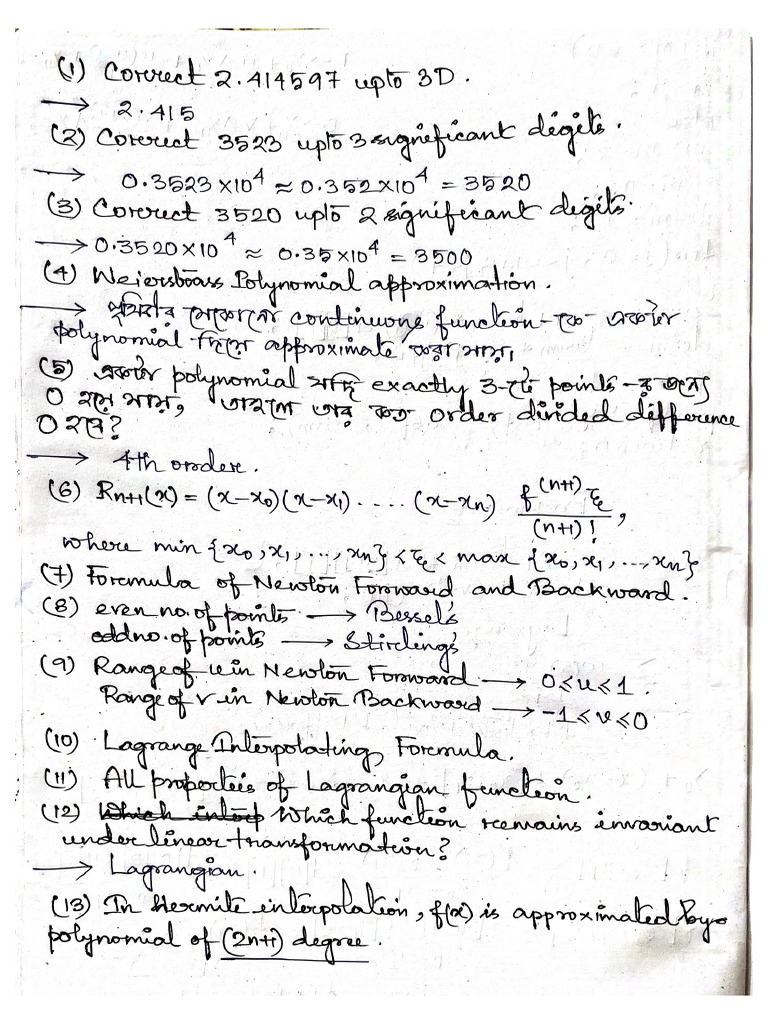 (1) Correct 2.414597 upto 3D.
→ 2.415
(2) Correct 3523 upto 3 significant digits.
→ 0.3523×10⁴ ≈ 0.352×10⁴ = 3520
(3) Correct 3520 upto 2 significant digits.
→ 0.3520×10⁴ ≈ 0.35×10⁴ = 3500
(4) Weierstrass Polynomial approximation.
→ পৃথিবীর যেকোনো continuous function-কে একটা
polynomial দিয়ে approximate করা যায়।
(5) একটা polynomial যদি exactly 3-টে points-র জন্যে
0 হয়ে যায়, তাহলে তার কত order divided difference
0 হবে?
→ 4th order.
(6) Rn+1(x) = (x-x₀)(x-x₁) .... (x-xn) f^(n+1) ξ / (n+1)! ,
where min {x₀, x₁, ..., xn} < ξ < max {x₀, x₁, ..., xn}
(7) Formula of Newton Forward and Backward.
(8) even no. of points → Bessel's
odd no. of points → Stirling's
(9) Range of u in Newton Forward → 0≤u≤1.
Range of v in Newton Backward → -1≤v≤0
(10) Lagrange Interpolating Formula.
(11) All properteis of Lagrangian function.
(12) Which function remains invariant
under linear transformation?
→ Lagrangian.
(13) In Hermite interpolation, f(x) is approximated by
polynomial of (2n+1) degree.